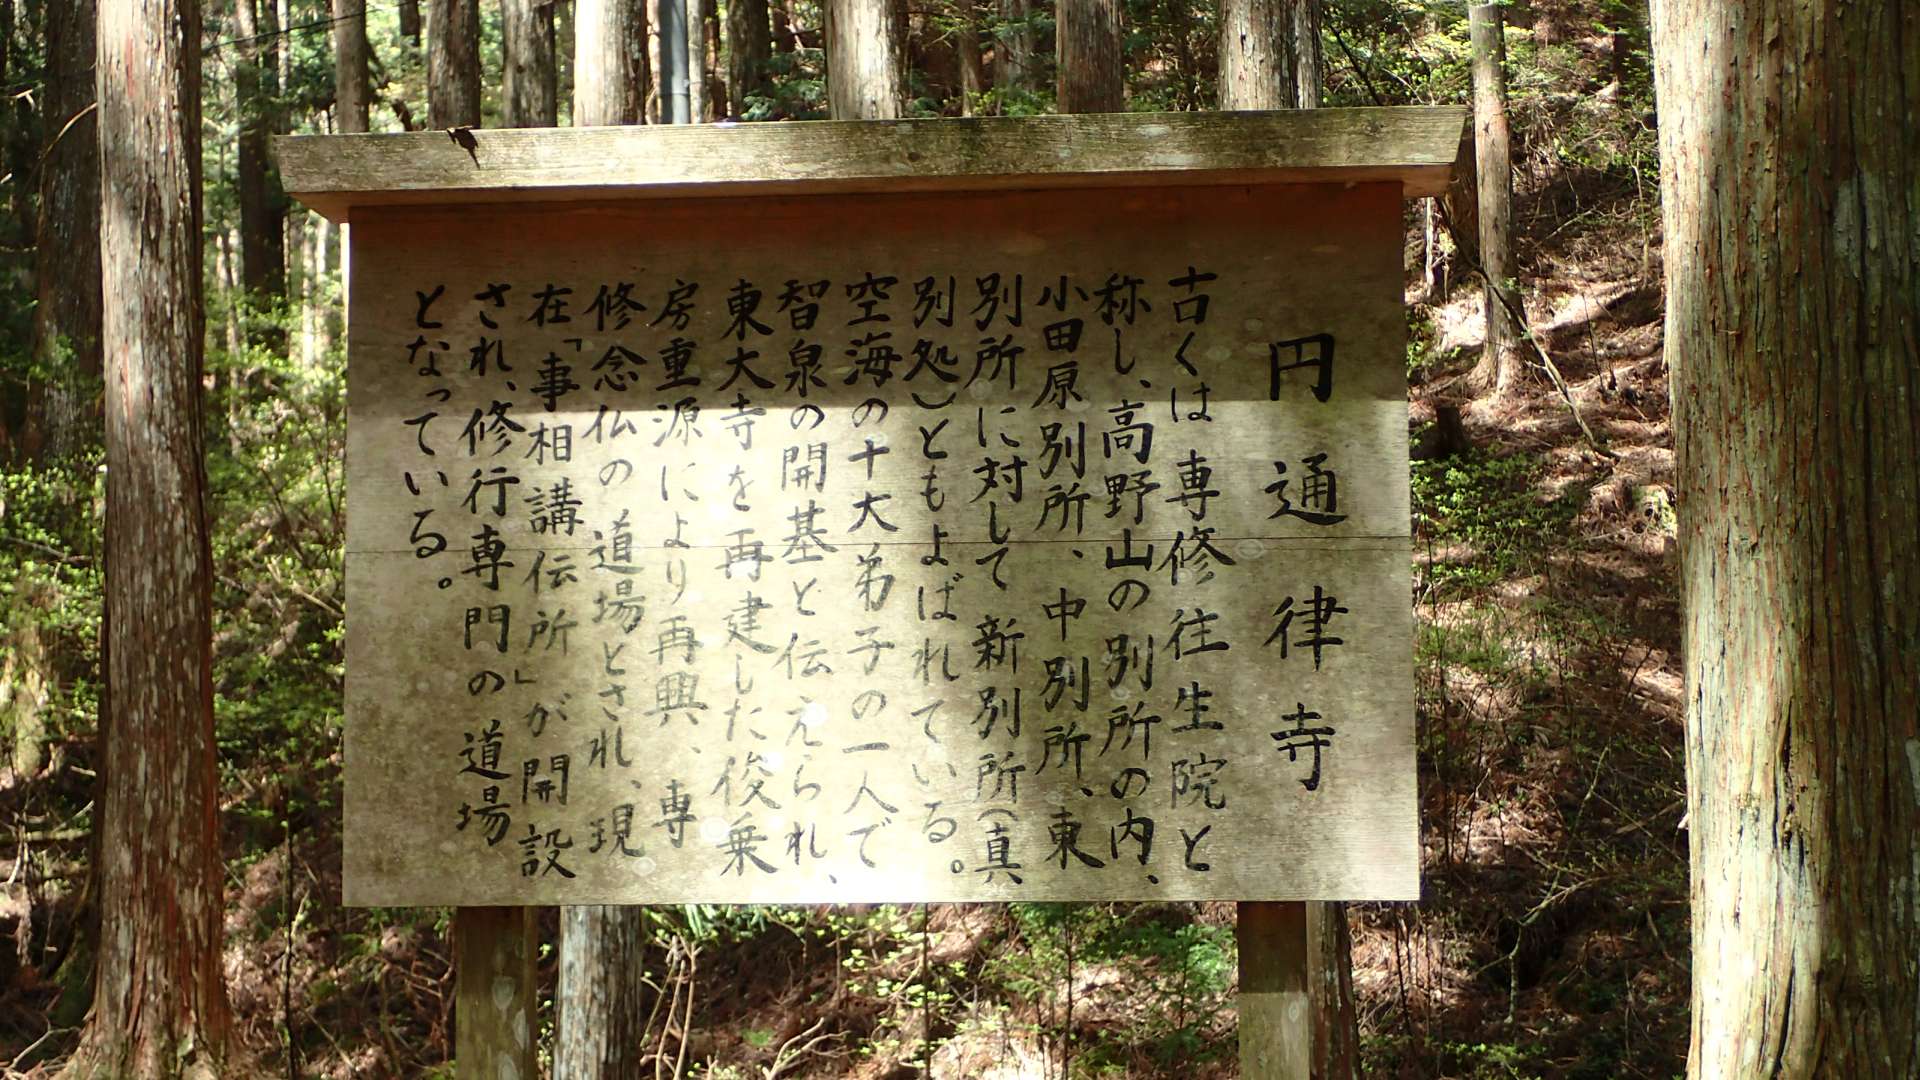 円通律寺
古くは専修往生院と
称し、高野山の別所の内、
小田原別所、中別所、東
別所に対して新別所（真
別処）ともよばれている。
空海の十大弟子の一人で
智泉の開基と伝えられ、
東大寺を再建した俊乗
房重源により再興、専
修念仏の道場とされ、現
在「事相講伝所」が開設
され、修行専門の道場
となっている。